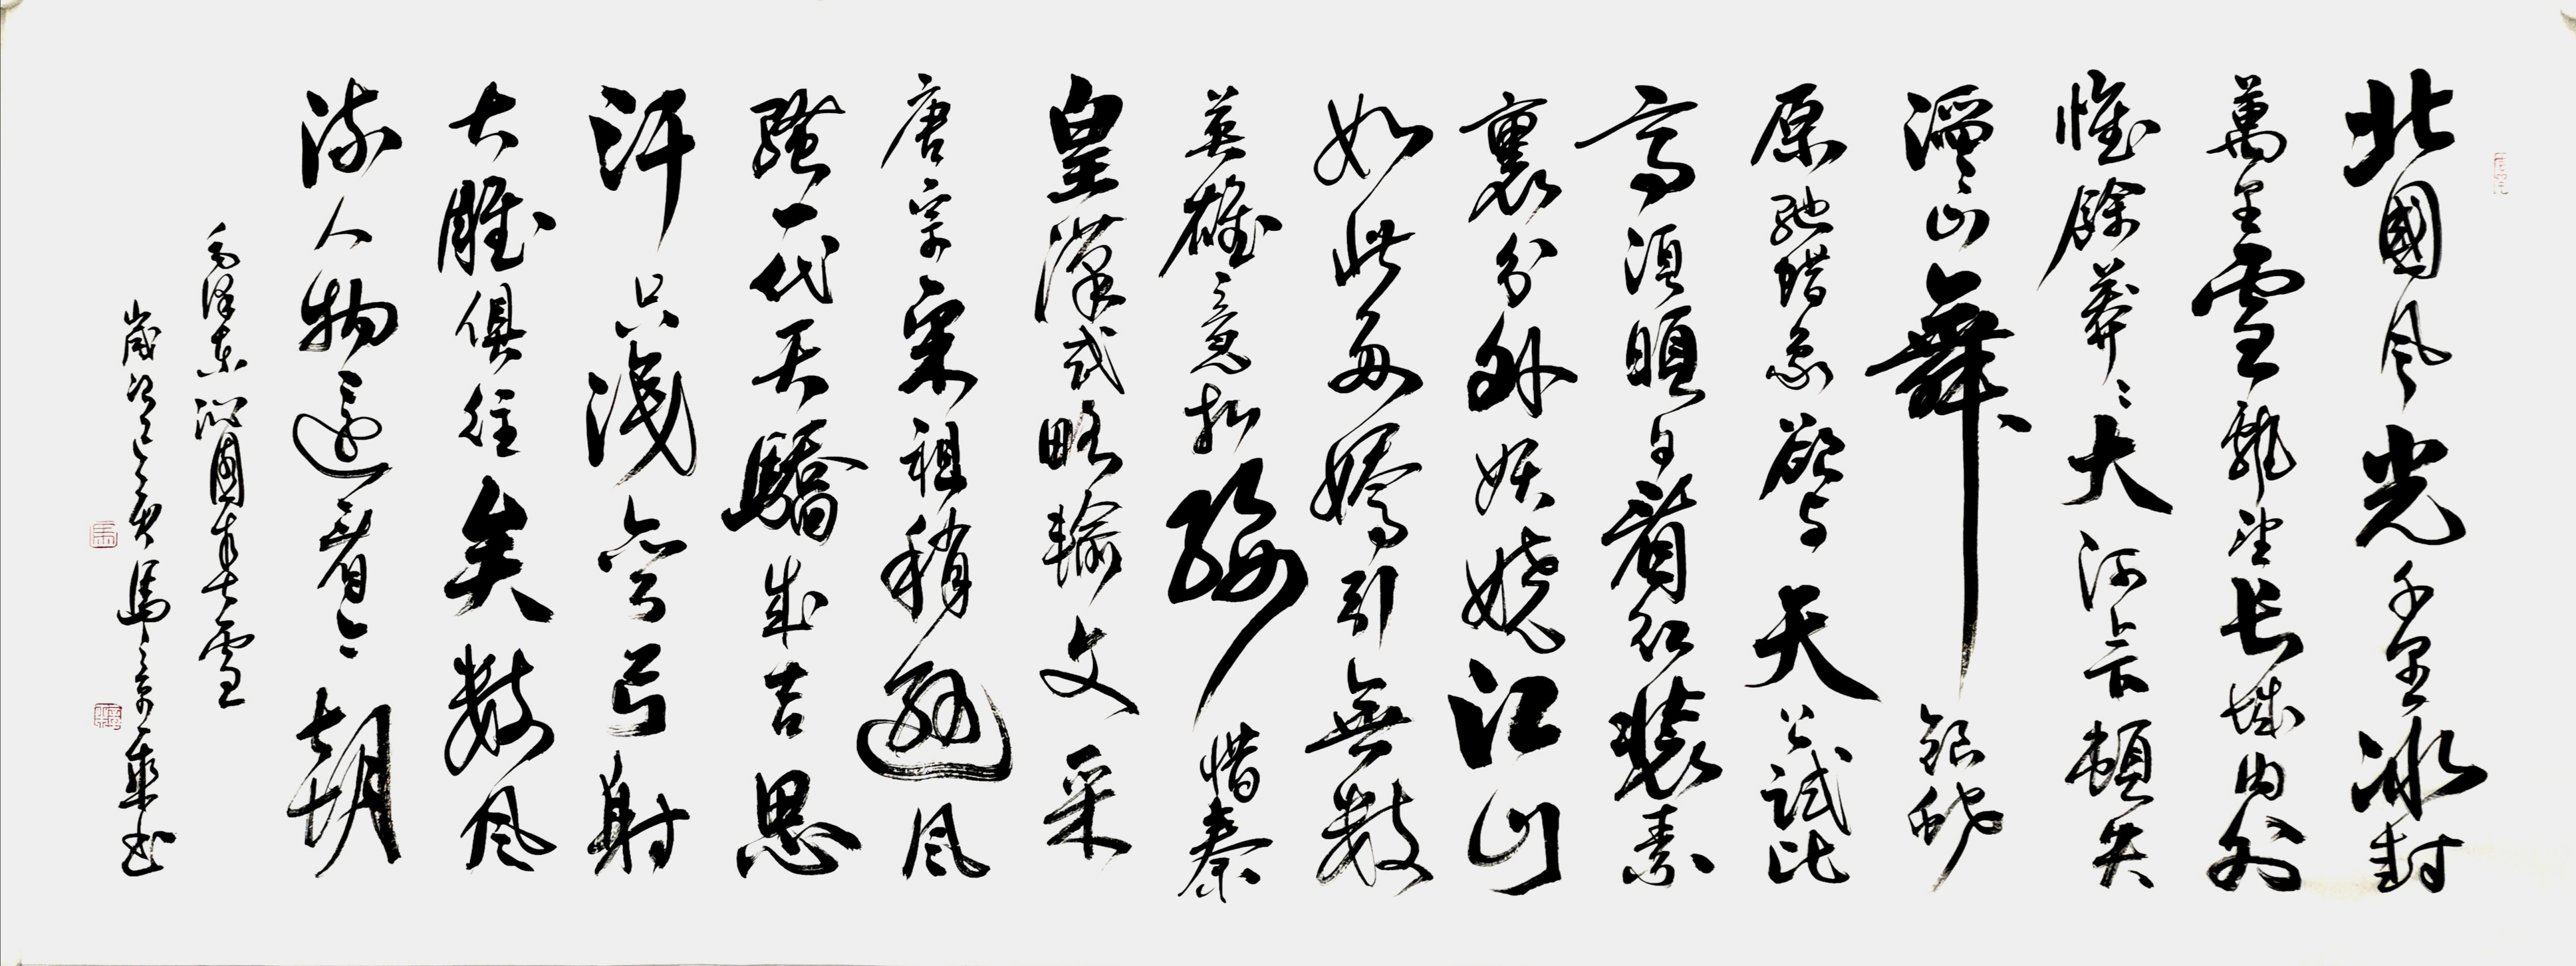 北國风光千里冰封
萬里雪飄望长城内外
惟餘莽〻大河上下頓失
滔〻山舞銀蛇
原馳蜡象欲与天公試比
高須晴日看红裝素
裹分外妖嬈江山
如此多嬌引無數
英雄竞折腰惜秦
皇漢武略輸文采
唐宗宋祖稍遜风
騷一代天驕成吉思
汗只識彎弓射
大雕俱往矣數风
流人物還看今朝
毛泽东沁園春雪
歲次己亥馬书